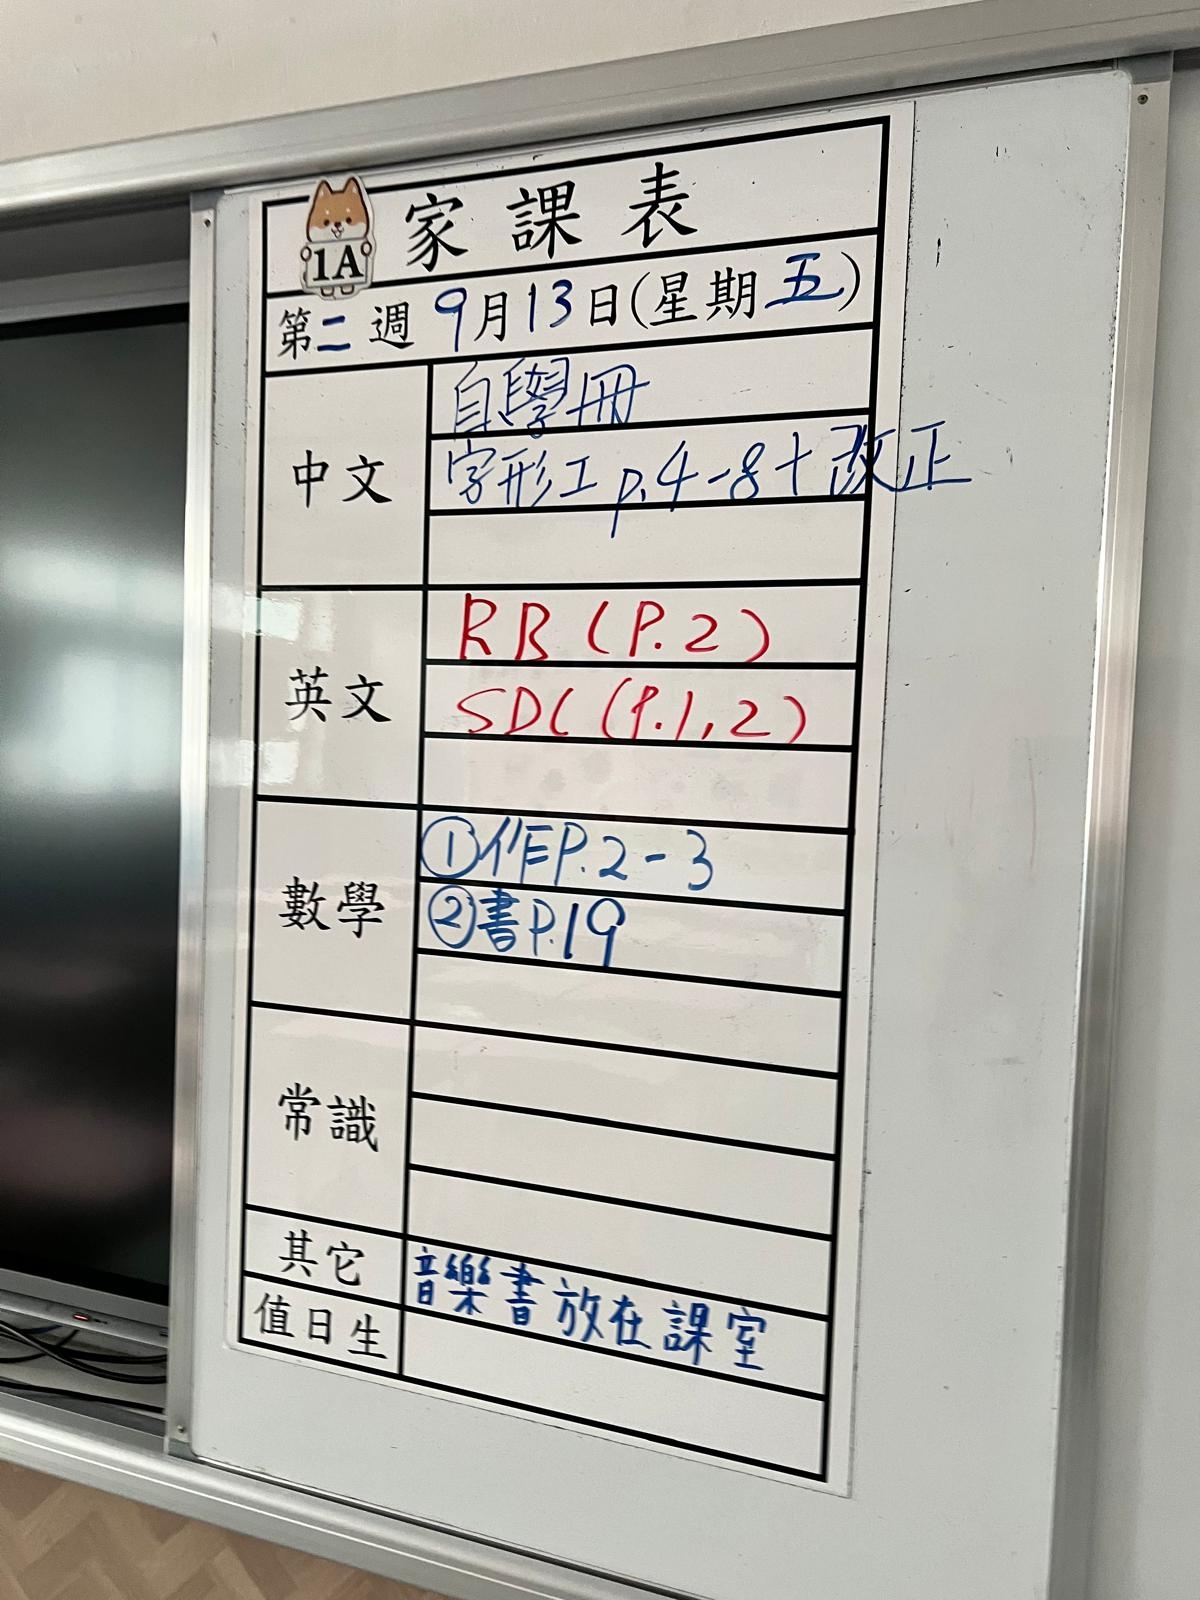 1A
家課表
第二週 9月13日(星期五)
中文
自學冊
字形工 p.4-8+改正
英文
RB (P.2)
SDC (P.1,2)
數學
①作P.2-3
②書P.19
常識
其它
音樂書放在課室
值日生